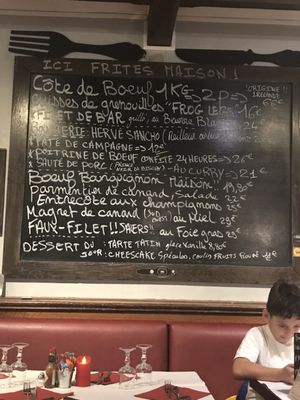 ICI FRITES MAISON !
Côte de Boeuf 1KG → 2P "ORIGINE !! IRLANDE
CUISSES de grenouilles "FROG LEGS"
FILET DE BAR grillé, Beurre Blanc
HERVÉ SANCHO (Meilleur
PATÉ DE CAMPAGNE → 12€
* POITRINE DE BOEUF CONFITE 24 HEURES → 26€
* SAUTÉ DE PORC AU CURRY → 21€
BOEUF Bourguignon Maison !! 19,80€
PARMENTIER de canard, Salade 22€
ENTRECÔTE aux champignons 25€
Magret de canard au Miel 29€
FAUX-FILET !! au Foie gras 25€
DESSERT DU JOUR : TARTE TATIN glace Vanille 8,80€
CHEESCAKE Spéculos, coulis FRUITS ROUGE